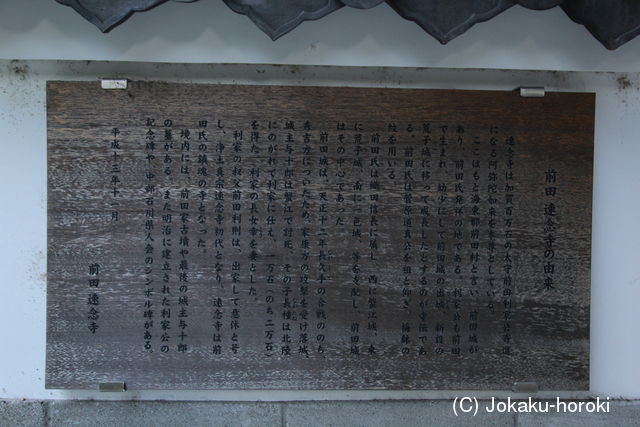 前田 速念寺の由来
速念寺は加賀百万石の太守前田利家公寄進
になる阿弥陀如来を本尊としている。
ここはもと海東郡前田村と言い、前田城が
あり、前田氏発祥の地である。利家公も前田
で生まれ、幼少にして前田城の出城、新設の
荒子城に移って成長したとするのが寺伝であ
る。前田氏は菅原道真公を祖と仰ぎ、梅鉢の
紋を用いる。
前田氏は織田信長に属し、西に蟹江城、東
に荒子城、南に下之一色城、等を支配し、前田城
はその中心であった。
前田城は、天正十二年長久手の合戦ののち、
秀吉方についたため、家康方の攻撃を受け落城、
城主与十郎は蟹江で討死、その子長種は北陸
にのがれて利家に仕え、一万石(のち二万石)
を得た。利家の長女幸を妻とした。
利家の叔父前田利則は、出家して意休と号
し、浄土真宗速念寺初代となり、速念寺は前
田氏の鎮魂の寺となった。
境内には、前田家古墳や最後の城主与十郎
の墓がある。また明治に建立された利家公の
記念碑や、中部石川県人会のシンボル碑がある。
平成十三年十一月
前田 速念寺
(C) Jokaku-horoki